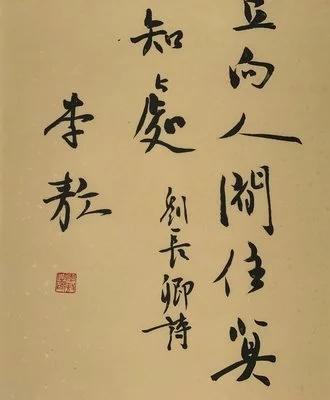 向人間住莫
知處
劉長卿詩
李敖